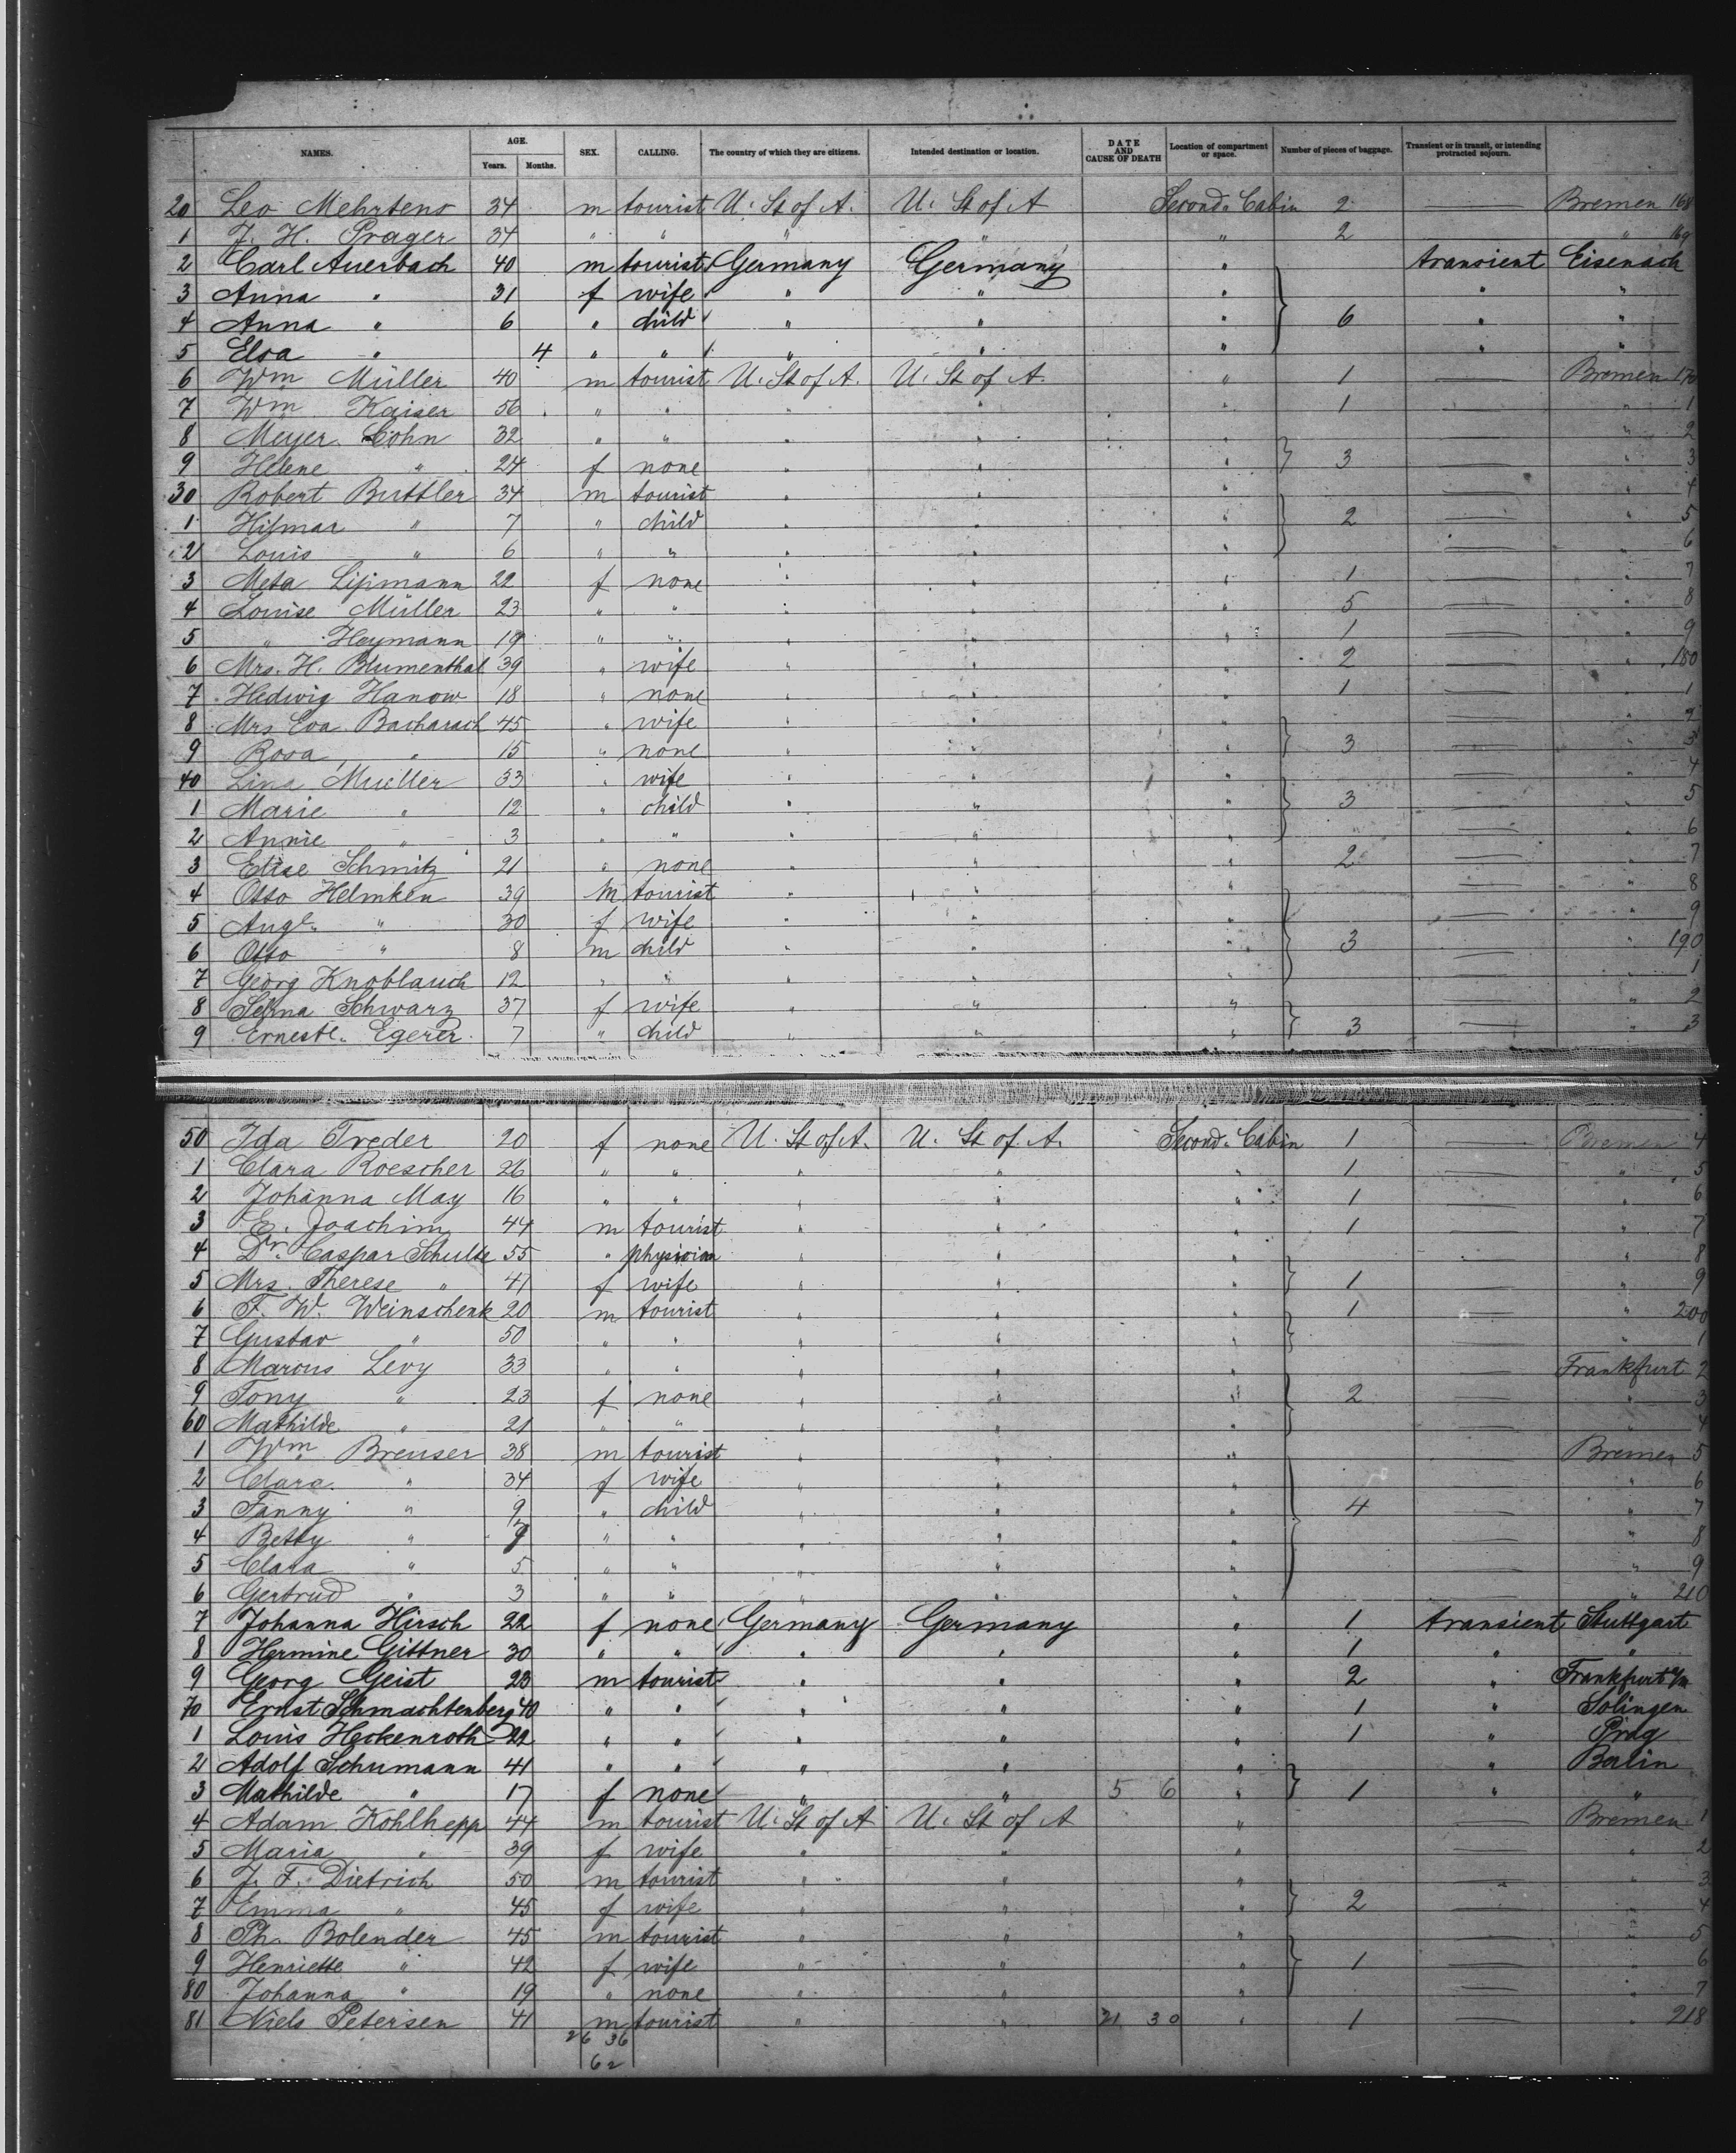 NAMES. AGE. Years. Months. SEX. CALLING. The country of which they are citizens. Intended destination or location. DATE AND CAUSE OF DEATH Location of compartment or space. Number of pieces of baggage. Transient or in transit, or intending protracted sojourn.
20 Leo Mehrtens 34 m tourist U. St of A. U. St of A Second. Cabin 2 — Bremen 168
1 J. H. Prager 34 " " " " " 2 — " 169
2 Carl Auerbach 40 m tourist Germany Germany " transient Eisenach
3 Anna " 31 f wife " " " " "
4 Anna " 6 " child " " " 6 " "
5 Elsa " 4 " " " " " " "
6 Wm Müller 40 m tourist U. St of A. U. St of A. " 1 — Bremen 170
7 Wm Kaiser 56 " " " " " 1 — " 1
8 Meyer Cohn 32 " " " " " — " 2
9 Helene " 24 f none " " " 3 — " 3
30 Robert Buttler 34 m tourist " " " — " 4
1 Hilmar " 7 " child " " " 2 — " 5
2 Louis " 6 " " " " " — " 6
3 Meta Lipmann 22 f none " " " 1 — " 7
4 Louise Müller 23 " " " " " 5 — " 8
5 " Heymann 19 " " " " " 1 — " 9
6 Mrs. H. Blumenthal 39 " wife " " " 2 — " 180
7 Hedwig Hanow 18 " none " " " 1 — " 1
8 Mrs Eva Bacharach 45 " wife " " " — " 2
9 Rosa " 15 " none " " " 3 — " 3
40 Lina Mueller 33 " wife " " " — " 4
1 Marie " 12 " child " " " 3 — " 5
2 Annie " 3 " " " " " — " 6
3 Elise Schmitz 21 " none " " " 2 — " 7
4 Otto Helmken 39 m tourist " " " — " 8
5 Augte. " 30 f wife " " " — " 9
6 Otto " 8 m child " " " 3 — " 190
7 Georg Knoblauch 12 " " " " " — " 1
8 Selma Schwarz 37 f wife " " " — " 2
9 Erneste. Egerer 7 " child " " " 3 — " 3
50 Ida Treder 20 f none U. St of A. U. St of A. Second. Cabin 1 — Bremen 4
1 Clara Roescher 26 " " " " " 1 — " 5
2 Johanna May 16 " " " " " 1 — " 6
3 E. Joachim 44 m tourist " " " 1 — " 7
4 Dr. Caspar Schulte 55 " physician " " " — " 8
5 Mrs. Therese " 41 f wife " " " 1 — " 9
6 F. W. Weinschenk 20 m tourist " " " 1 — " 200
7 Gustav " 50 " " " " " — " 1
8 Marcus Levy 33 " " " " " — Frankfurt 2
9 Tony " 23 f none " " " 2 — " 3
60 Mathilde " 21 " " " " " — " 4
1 Wm Breuser 38 m tourist " " " — Bremen 5
2 Clara " 34 f wife " " " — " 6
3 Fanny " 9 " child " " " 4 — " 7
4 Betty " " " " " " — " 8
5 Clara " 5 " " " " " — " 9
6 Gertrud " 3 " " " " " — " 210
7 Johanna Hirsch 22 f none Germany Germany " 1 transient Stuttgart
8 Hermine Gittner 30 " " " " " 1 " "
9 Georg Geist 23 m tourist " " " 2 " Frankfurt a/m
70 Ernst Schmachtenberg 40 " " " " " 1 " Solingen
1 Louis Heckenroth 22 " " " " " 1 " Prag
2 Adolf Schumann 41 " " " " " " Berlin
3 Mathilde " 17 f none " " 5 6 " 1 " "
4 Adam Kohlhepp 44 m tourist U. St of A U. St of A " — Bremen 1
5 Maria " 39 f wife " " " — " 2
6 J. F. Dietrich 50 m tourist " " " — " 3
7 Emma " 45 f wife " " " 2 — " 4
8 Ph. Bolender 45 m tourist " " " — " 5
9 Henriette " 42 f wife " " " 1 — " 6
80 Johanna " 19 " none " " " — " 7
81 Niels Petersen 41 m tourist " " 21 30 " 1 — " 218
26 36
62